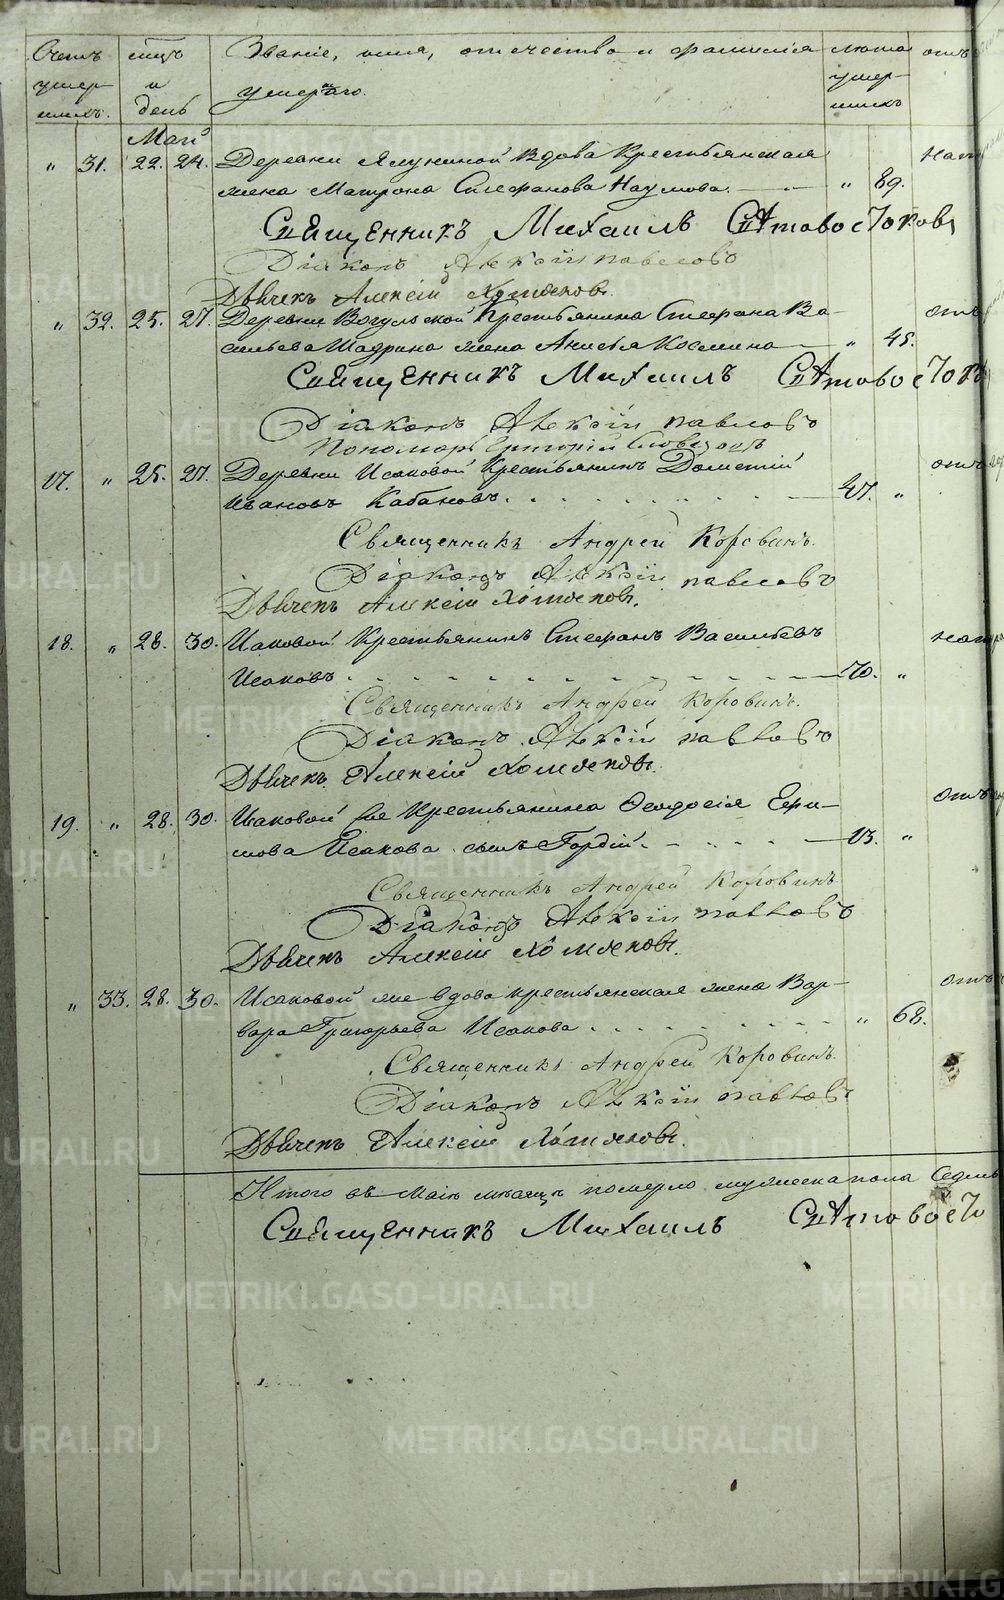 Счетъ умершихъ. мцъ и день Званіе, имя, отечество и фамилія умершаго. лета умершихъ отъ
Маій
" 31. 22. 24. Деревни Ялуниной Вдова Крестьянская
жена Матрона Стефанова Наумова. " 89.
Священникъ Михаилъ
Діаконъ Алексій Павловъ
Дьячекъ Алексій Хомяковъ.
" 32. 25. 27. Деревни Вогульской Крестьянина Стефана Ва-
сильева Шадрина жена Анисья Космина " 45.
Священникъ Михаилъ
Діаконъ Алексій Павловъ
Пономарь Григорій Словцовъ
17. " 25. 27. Деревни Исаковой Крестьянинъ Дометій
Ивановъ Кабановъ. 47. "
Священникъ Андрей Коровинъ.
Діаконъ Алексій Павловъ
Дьячекъ Алексій Хомяковъ.
18. " 28. 30. Исаковой Крестьянинъ Стефанъ Васильевъ
Исаковъ. 70. "
Священникъ Андрей Коровинъ.
Діаконъ Алексій Павловъ
Дьячекъ Алексій Хомяковъ.
19. " 28. 30. Исаковой же Крестьянина Феодосія Ефи-
мова Исакова сынъ Гордій. 13. "
Священникъ Андрей Коровинъ
Діаконъ Алексій Павловъ
Дьячекъ Алексій Хомяковъ.
" 33. 28. 30. Исаковой же вдова крестьянская жена Вар-
вара Григорьева Исакова " 68.
Священникъ Андрей Коровинъ.
Діаконъ Алексій Павловъ
Дьячекъ Алексій Хомяковъ.
Итого въ Маіѣ мѣсяцѣ померло мужеска пола Седмь
Священникъ Михаилъ
METRIKI.GASO-URAL.RU